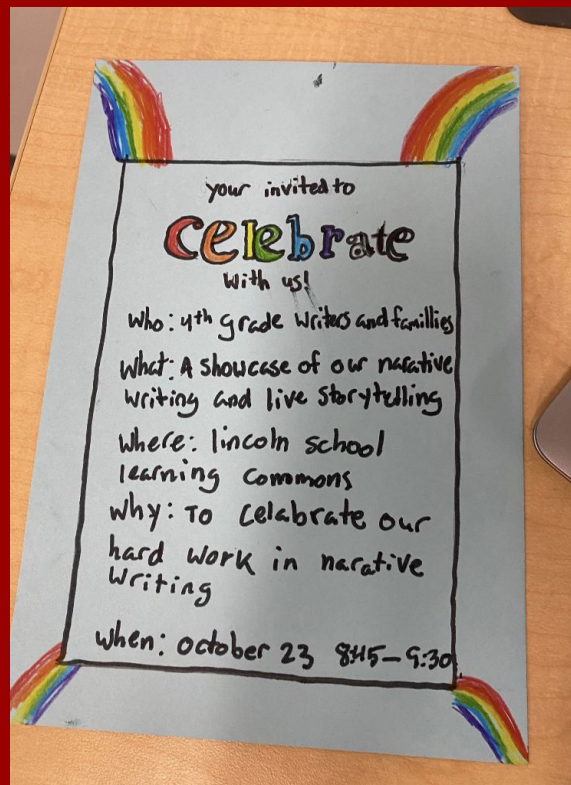 your invited to
celebrate
with us!
who: 4th grade writers and famillies
what: A showcase of our narative
writing and live storytelling
where: lincoln school
learning commons
why: To celabrate our
hard work in narative
writing
when: october 23 8:45-9:30